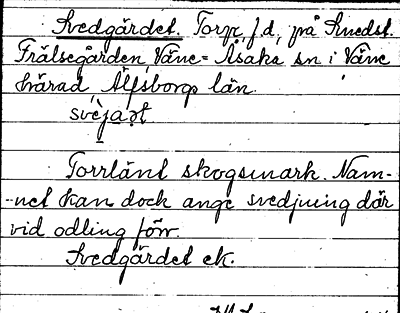 Svedgärdet. Torp, f.d. på Smedst.
Frälsegården, Väne-Åsaka sn i Väne
härad, Älfsborgs län.
svèjaṛt
Torrlänt skogsmark. Nam-
-net kan dock ange svedjning där
vid odling förr.
Svedgärdet ek.